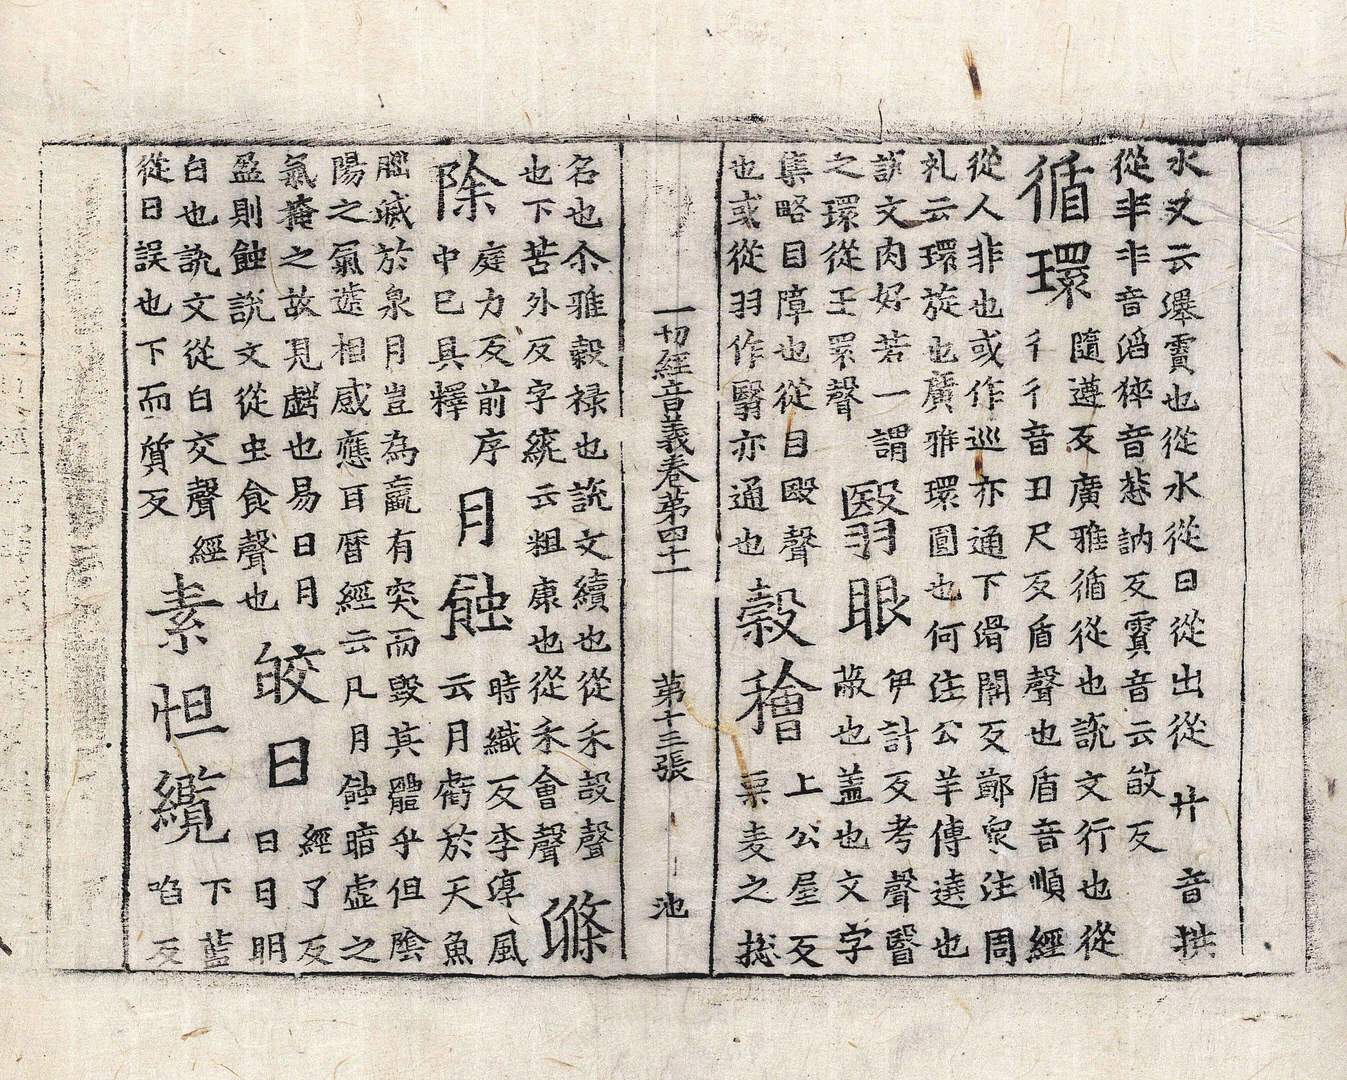 水又云㬥賣也從水從日從出從廾音拱
從半半音滔稡音慈訥反賣音云敃反
循環
隨遵反廣雅循從也說文行也從
彳彳音丑尺反盾聲也盾音順經
從人非也或作巡亦通下滑關反鄭衆注周
礼云環旋也廣雅環圓也何注公羊傳遶也
說文肉好若一謂
之環從王睘聲
翳眼
伊計反考聲翳
蔽也蓋也文字
集略目障也從目殹聲
也或從羽作翳亦通也
上公屋反
穀穡
稟麦之揔
一切經音義卷第四十一 第十三張 池
名也尒雅穀禄也說文續也從禾𣪊聲
也下苦外反字統云粗康也從禾會聲
滌除
庭力反前序
中已具釋
月蝕
時織反李淳風
云月虧於天魚
腦減於泉月豈為羸有突而毀其體乎但陰
陽之氣遞相感應耳曆經云凡月蝕暗虛之
氣掩之故見虧也易日月
盈則蝕說文從虫食聲也
皎日
經了反
曰日明
白也說文從白交聲經
從日誤也下而質反
素怛纜
下藍
啗反